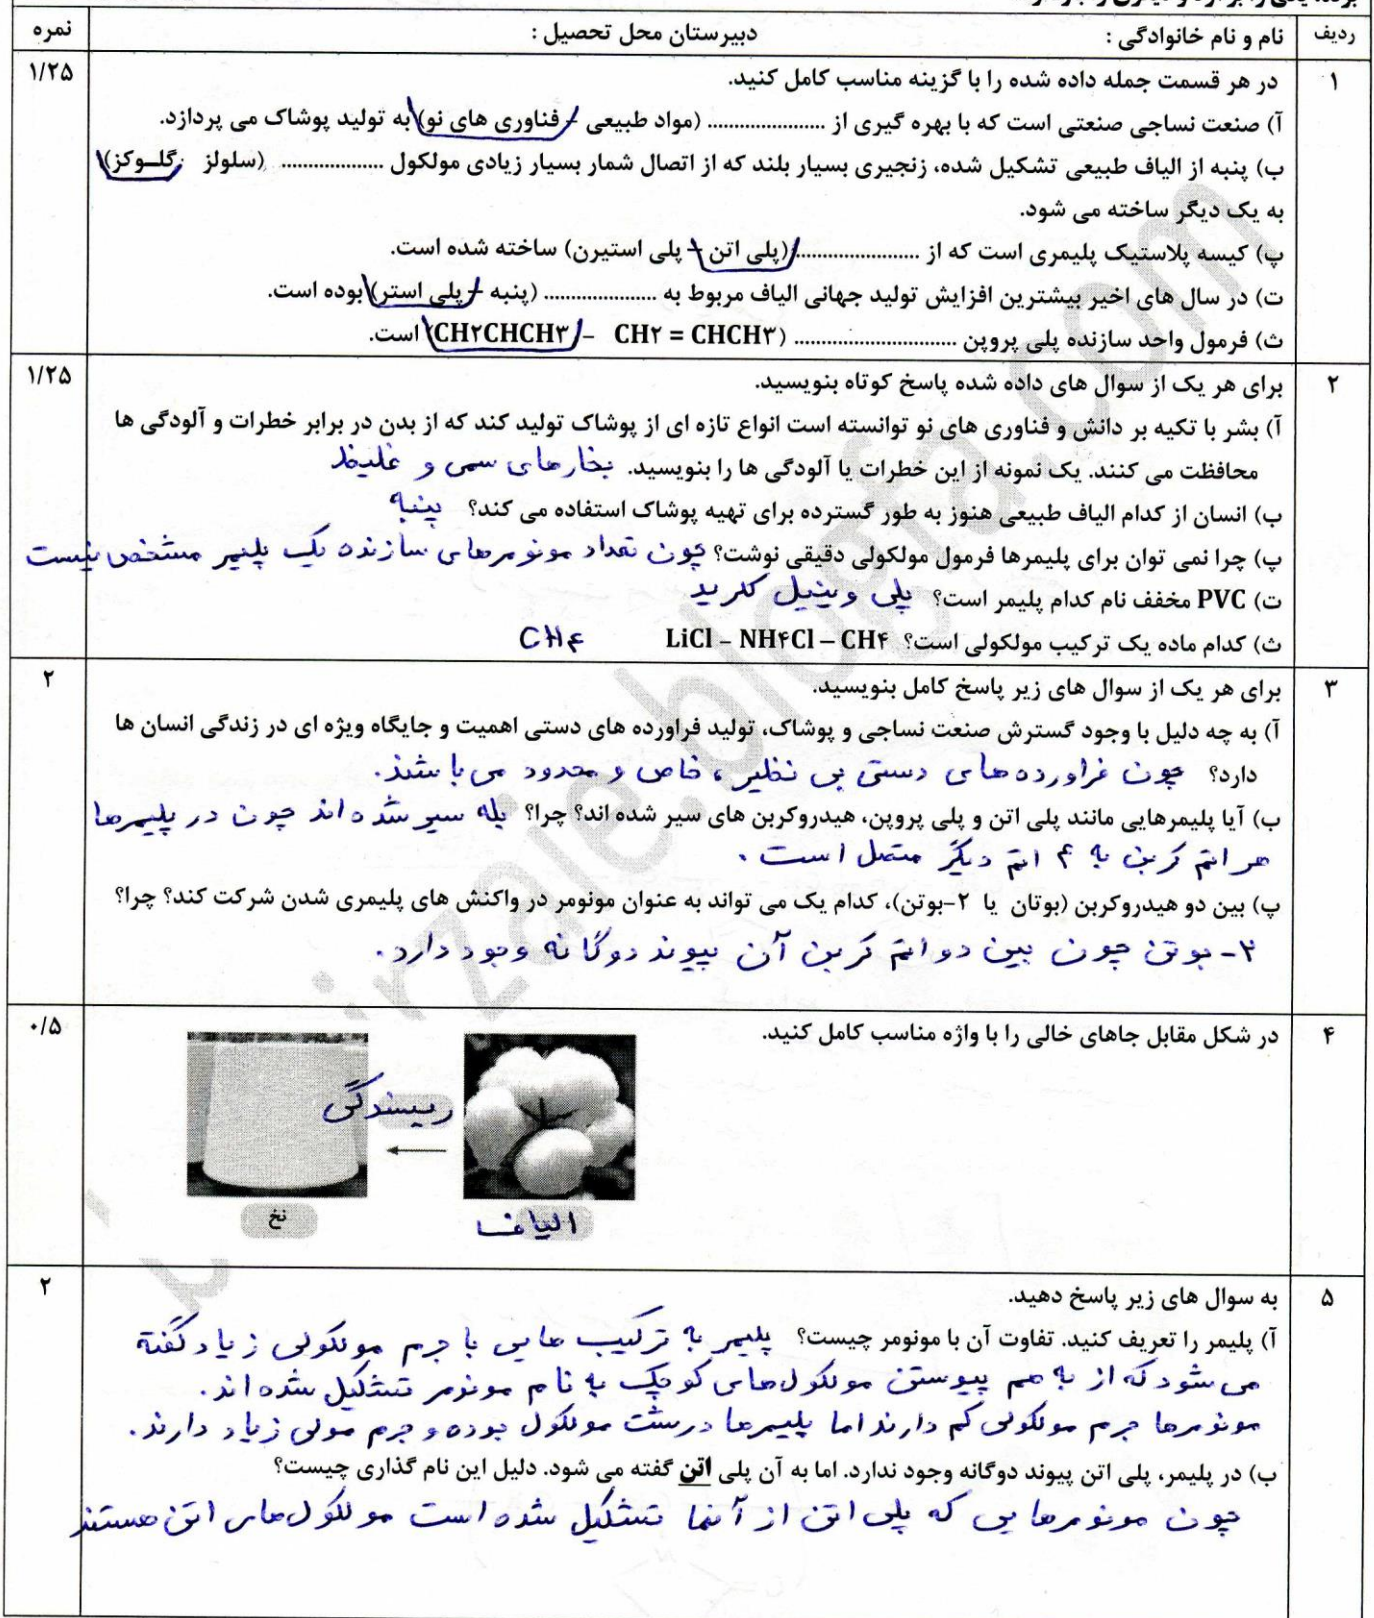 ردیف نام و نام خانوادگی : دبیرستان محل تحصیل : نمره
۱ در هر قسمت جمله داده شده را با گزینه مناسب کامل کنید. ۱/۲۵
آ) صنعت نساجی صنعتی است که با بهره گیری از ...................... (مواد طبیعی – فناوری های نو) به تولید پوشاک می پردازد.
ب) پنبه از الیاف طبیعی تشکیل شده، زنجیری بسیار بلند که از اتصال شمار بسیار زیادی مولکول ................... (سلولز – گلـوکز)
به یک دیگر ساخته می شود.
پ) کیسه پلاستیک پلیمری است که از ...................... (پلی اتن – پلی استیرن) ساخته شده است.
ت) در سال های اخیر بیشترین افزایش تولید جهانی الیاف مربوط به ..................... (پنبه – پلی استر) بوده است.
ث) فرمول واحد سازنده پلی پروپن .............................. (CH۲ = CHCH۳ – CH۲CHCH۳) است.
۲ برای هر یک از سوال های داده شده پاسخ کوتاه بنویسید. ۱/۲۵
آ) بشر با تکیه بر دانش و فناوری های نو توانسته است انواع تازه ای از پوشاک تولید کند که از بدن در برابر خطرات و آلودگی ها
محافظت می کنند. یک نمونه از این خطرات یا آلودگی ها را بنویسید. بخارهای سمی و غلیظ
ب) انسان از کدام الیاف طبیعی هنوز به طور گسترده برای تهیه پوشاک استفاده می کند؟ پنبه
پ) چرا نمی توان برای پلیمرها فرمول مولکولی دقیقی نوشت؟ چون تعداد مونومرهای سازنده یک پلیمر مشخص نیست
ت) PVC مخفف نام کدام پلیمر است؟ پلی وینیل کلرید
ث) کدام ماده یک ترکیب مولکولی است؟ LiCl – NH۴Cl – CH۴ CH۴
۳ برای هر یک از سوال های زیر پاسخ کامل بنویسید. ۲
آ) به چه دلیل با وجود گسترش صنعت نساجی و پوشاک، تولید فراورده های دستی اهمیت و جایگاه ویژه ای در زندگی انسان ها
دارد؟ چون فراورده های دستی بی نظیر ، خاص و محدود می باشند.
ب) آیا پلیمرهایی مانند پلی اتن و پلی پروپن، هیدروکربن های سیر شده اند؟ چرا؟ بله سیر شده اند چون در پلیمرها
هر اتم کربن به ۴ اتم دیگر متصل است .
پ) بین دو هیدروکربن (بوتان یا ۲-بوتن)، کدام یک می تواند به عنوان مونومر در واکنش های پلیمری شدن شرکت کند؟ چرا؟
۲- بوتن چون بین دو اتم کربن آن پیوند دوگانه وجود دارد.
۴ در شکل مقابل جاهای خالی را با واژه مناسب کامل کنید. ۰/۵
ریسندگی
الیاف نخ
۵ به سوال های زیر پاسخ دهید. ۲
آ) پلیمر را تعریف کنید. تفاوت آن با مونومر چیست؟ پلیمر به ترکیب هایی با جرم مولکولی زیاد گفته
می شود که از به هم پیوستن مولکول های کوچک به نام مونومر تشکیل شده اند.
مونومرها جرم مولکولی کم دارند اما پلیمرها درشت مولکول بوده و جرم مولی زیاد دارند.
ب) در پلیمر، پلی اتن پیوند دوگانه وجود ندارد. اما به آن پلی اتن گفته می شود. دلیل این نام گذاری چیست؟
چون مونومرهایی که پلی اتن از آنها تشکیل شده است مولکول های اتن هستند